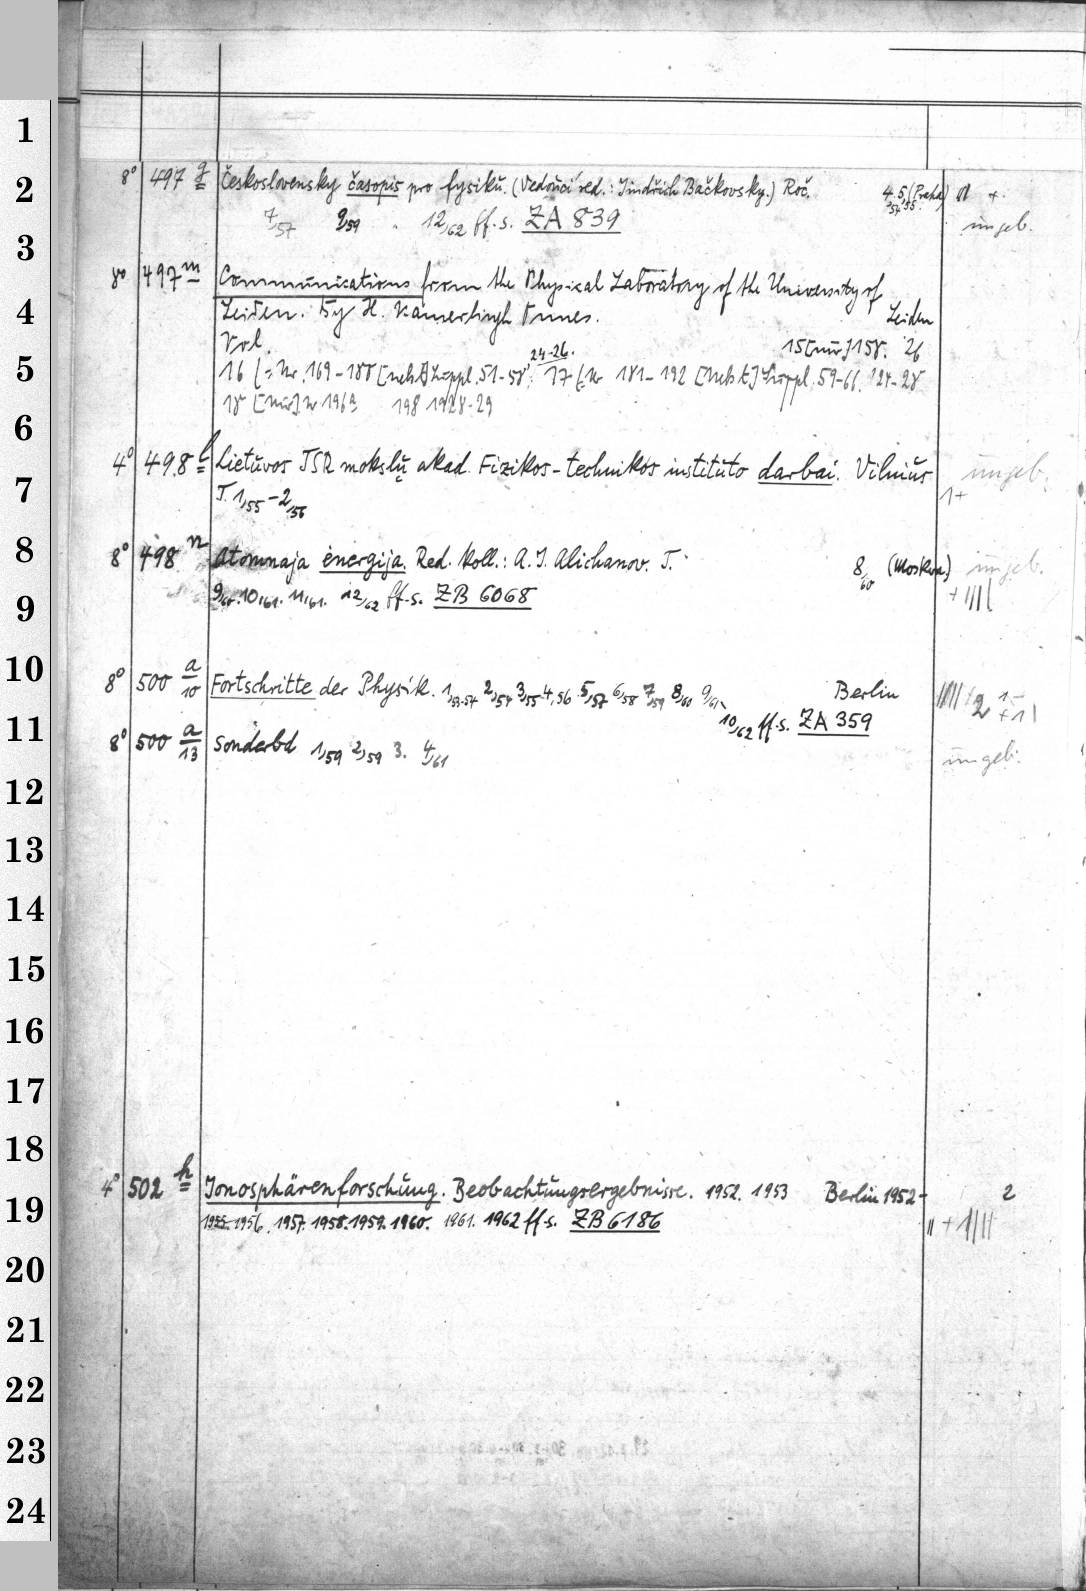 1
2
3
4
5
6
7
8
9
10
11
12
13
14
15
16
17
18
19
20
21
22
23
24
8° 497 g Československy časopis pro fysiku. (Vedoúcí red.: Jindřich Bačkovsky.) Roč. 4,54 5,55 (Praha) +.
7,57 9,59 . 12,62 ff. s. ZA 839 ungeb.
8° 497 m Communications from the Physical Laboratory of the University of
Leiden. By H. Kamerlingh Onnes. Leiden
Vol. 15 [nur] 158. 26
24-26.
16 (= Nr. 169-180 [nebst] Suppl. 51-58 17 (= Nr 181-192 [nebst] Suppl. 59-66. 124-28
18 [nur] Nr 196a 198 1928-29
4° 498 l Lietuvos TSR mokslų akad. Fizikos-technikos instituto darbai. Vilnius ungeb.
T. 1,55 - 2,56 1+
8° 498 n Atomnaja energija. Red. Koll.: A. I. Alichanov. T. 8,60 (Moskva) ungeb.
9,60. 10,61. 11,61. 12,62 ff. s. ZB 6068 + ||||
8° 500 a/10 Fortschritte der Physik. 1,53-54 2,54 3,55 4,56 5,57 6,58 7,59 8,60 9,61 Berlin
10,62 ff. s. ZA 359
8° 500 a/13 Sonderbd 1,59 2,59 3. 4,61 ungeb.
4° 502 h Ionosphärenforschung. Beobachtungsergebnisse. 1952. 1953 Berlin 1952- 2
1955. 1956. 1957. 1958. 1959. 1960. 1961. 1962 ff. s. ZB 6186 || + |||||